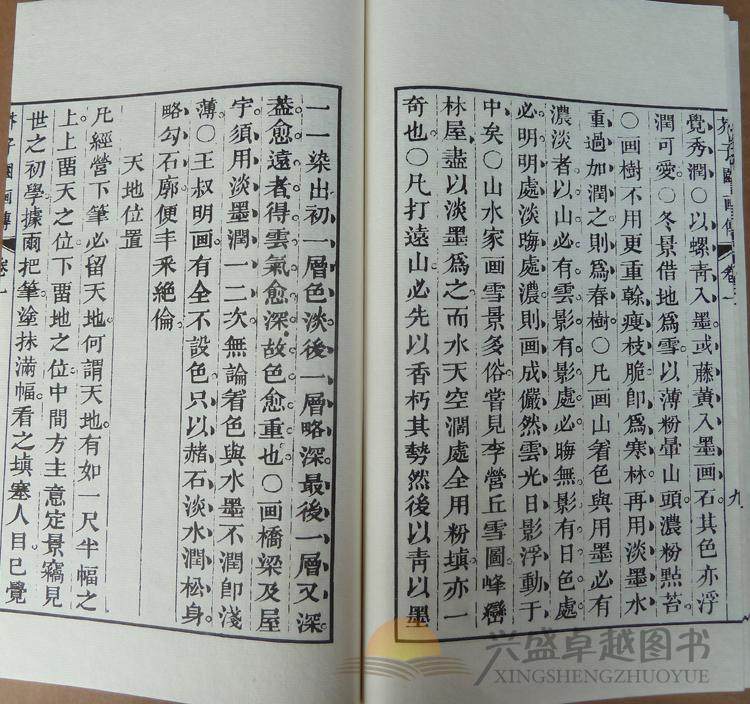 芥子園畫傳 卷一 九
覺秀潤○以螺青入墨或藤黃入墨画石其色亦浮
潤可愛○冬景借地爲雪以薄粉暈山頭濃粉㸃苔
○画樹不用更重幹瘦枝脆卽爲寒林再用淡墨水
重過加潤之則爲春樹○凡画山着色與用墨必有
濃淡者以山必有雲影有影處必晦無影有日色處
必明明處淡晦處濃則画成儼然雲光日影浮動于
中矣○山水家画雪景多俗嘗見李營丘雪圖峰巒
林屋盡以淡墨爲之而水天空濶處全用粉填亦一
奇也○凡打遠山必先以香朽其勢然後以青以墨
一一染出初一層色淡後一層略深最後一層又深
葢愈遠者得雲氣愈深故色愈重也○画橋梁及屋
宇須用淡墨潤一二次無論着色與水墨不潤卽淺
薄○王叔明画有全不設色只以赭石淡水潤松身
略勾石廓便丰采絕倫
天地位置
凡經營下筆必留天地何謂天地有如一尺半幅之
上上畱天之位下畱地之位中間方主意定景竊見
世之初學據爾把筆塗抹滿幅看之填塞人目已覺
芥子園画傳 卷一
兴盛卓越图书
XINGSHENGZHUOYUE